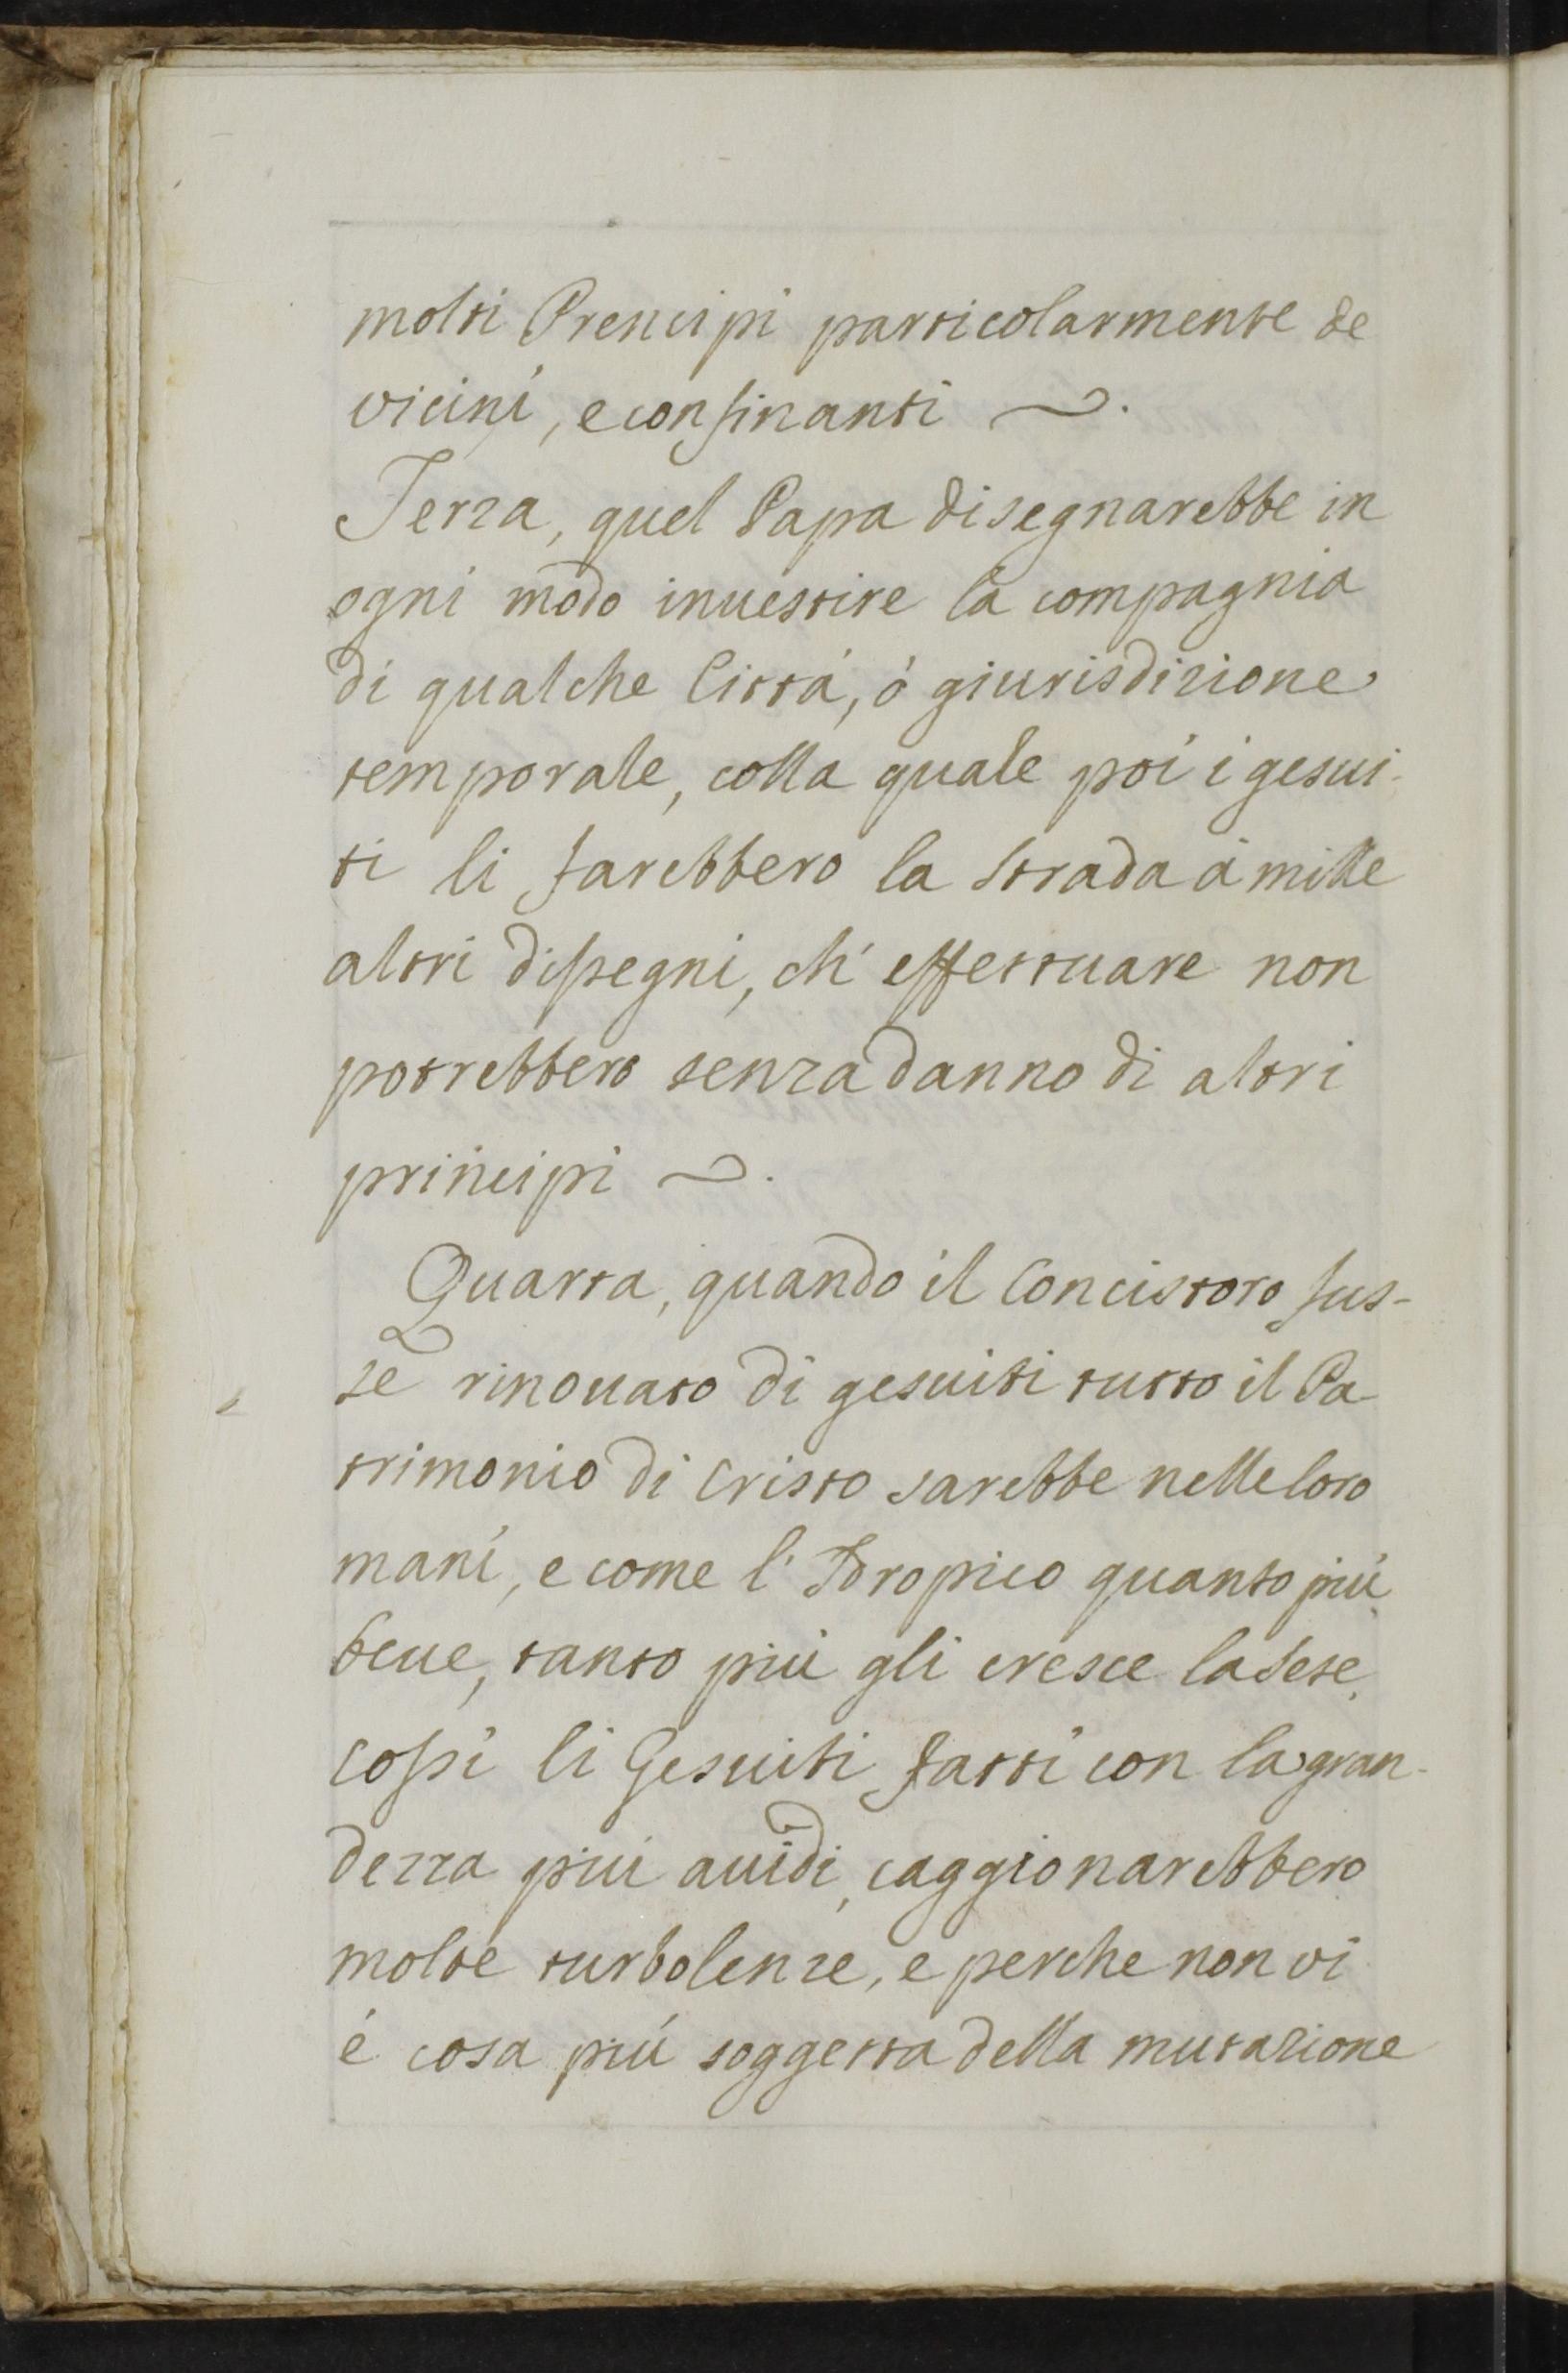 molti Prencipi particolarmente de
vicini, e confinanti ~.
Terza, quel Papa disegnarebbe in
ogni modo inuestire la compagnia
di qualche Città, ò giurisdizione
temporale, colla quale poi i gesui-
ti li farebbero la strada à mille
altri dissegni, ch' effettuare non
potrebbero senza danno di altri
principi ~.
Quarta, quando il Concistoro fus-
se rinouato di gesuiti tutto il Pa-
trimonio di Cristo sarebbe nelle loro
mani, e come l' Idropico quanto più
beue, tanto più gli cresce la sete,
cossì li Gesuiti fatti con la gran-
dezza più auidi, caggionarebbero
molte turbolenze, e perche non vi
è cosa più soggetta della mutazione